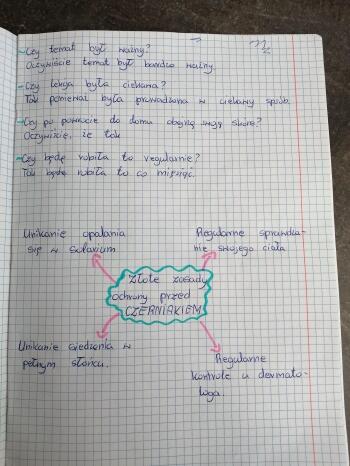 ~Czy temat był ważny?
Oczywiście temat był bardzo ważny.
~Czy lekcja była ciekawa?
Tak ponieważ była prowadzona w ciekawy sposób.
~Czy po powrocie do domu obejrzę swoją skórę?
Oczywiście, że tak
~Czy będę robiła to regularnie?
Tak będę robiła to co miesiąc.
Unikanie opalania
się w solarium
Regularne sprawdza-
nie swojego ciała
Złote zasady
ochrony przed
CZERNIAKIEM
Unikanie siedzenia w
pełnym słońcu.
Regularne
kontrole u dermato-
loga.